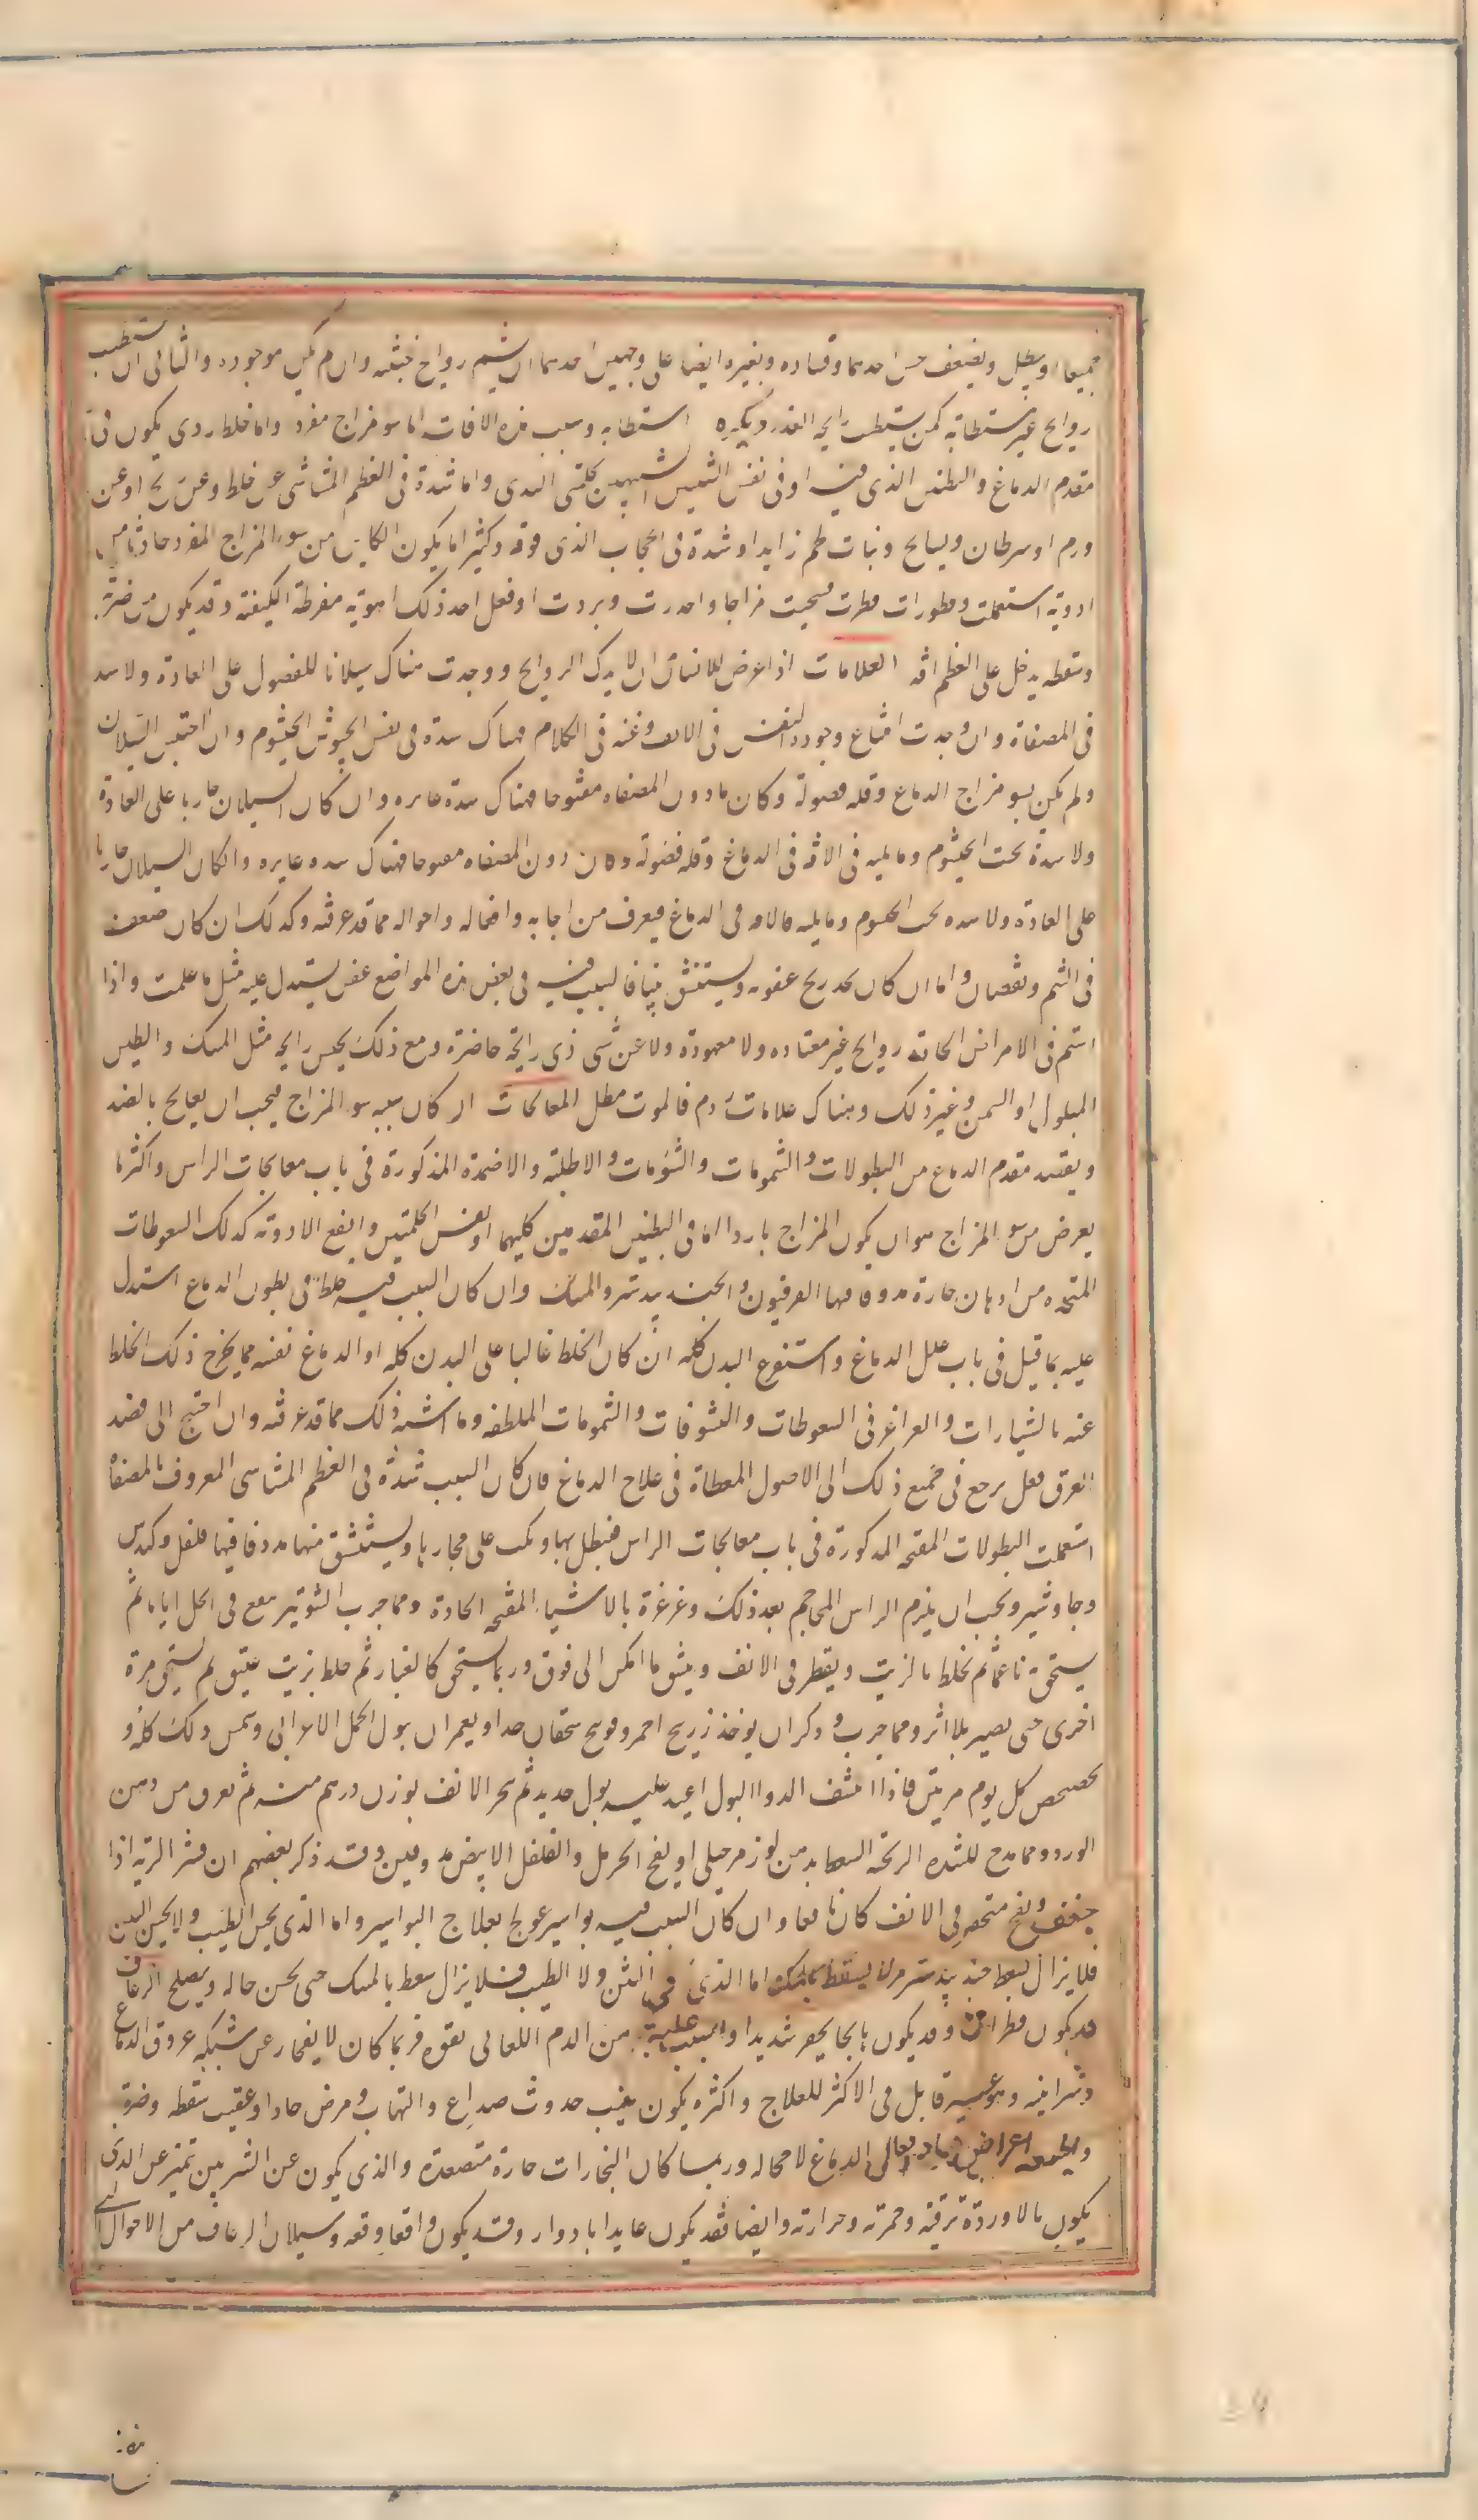 جميعا او يبطل ويضعف حس احدهما وفساده وبغيره ايضا على وجهين احدهما ان يشم روايح خبيثه وان لم يكن موجوده والثانى ان يستطيب
روايح غير مستطابة كمن يستطيب رايحه العذره ويكره استطابه وسبب هذه الافات اما سو مزاج مفرد واما خلط ردى يكون فى
مقدم الدماغ والبطنين الذى فيه او فى نفس الشبيهين بحلمتى الثدى واما شدة فى العظم المشاشى عن خلط وعن ريح او عن
ورم او سرطان ولسايح ونبات لحم زايد او شدة فى الحجاب الذى فوقه وكثيرا ما يكون الكاين من سوء المزاج المفرد حادثا من
ادوية استعملت وقطورات قطرت فسخنت مزاجا واخدرت وبردت او فعل احد ذلك اهوية مفرطة الكيفية وقد يكون من ضربة
وسقطه يدخل على العظم افه العلامات اذا عرض للانسان ان لا يدرك الروايح ووجدت هناك سيلانا للفضول على العادة ولا سده
فى المصفاة وان وجدت امتناع وجود النفس فى الانف وغنه فى الكلام فهناك سدة فى نفس الخيشوم وان احتبس السيلان
ولم يكن بسو مزاج الدماغ وقله فضوله وكان ما دون المصفاه مفتوحا فهناك سدة غايره وان كان السيلان جاريا على العادة
ولا سدة تحت الخيشوم وما يليه فى الافه فى الدماغ وقله فضوله وكان دون المصفاه مفتوحا فهناك سده غايره وان كان السيلان جاريا
على العادة ولا سده تحت الخيشوم وما يليه فالافه فى الدماغ فيعرف من اجابه وافعاله واحواله مما قد عرفته وكذلك ان كان ضعف
فى الشم ونقصان واما ان كان يجد ريح عفونه ويستنشق نتنا فالسبب فيه فى بعض هذه المواضع عفن يستدل عليه مثل ما علمت واذا
اشتم فى الامراض الحاده روايح غير معتاده ولا معهودة ولا عن شى ذى رايحة حاضرة ومع ذلك يحس رايحه مثل المسك والطين
المبلول او السمن وغير ذلك وهناك علامات ردم فالموت مطل المعالجات ان كان سببه سو المزاج فيجب ان يعالج بالضد
ويقصد مقدم الدماغ من النطولات والشمومات والنشوقات والاطليه والاضمدة المذكورة فى باب معالجات الراس واكثر ما
يعرض من سو المزاج هو ان يكون المزاج باردا اما فى البطنين المقدمين كليهما او نفس الحلمتين وانفع الادوية كذلك السعوطات
المتخذه من ادهان حارة مدوفا فيها الفربيون والجند بيدستر والمسك وان كان السبب فيه خلطا فى بطون الدماغ استدل
عليه بما قيل فى باب علل الدماغ واستفرغ البدن كله ان كان الخلط غالبا على البدن كله او الدماغ نفسه مما يخرج ذلك الخلط
عنه بالشيارات والغراغر فى السعوطات والنشوقات والشمومات الملطفه وما اشبه ذلك مما قد عرفته وان احتيج الى فصد
العرق فعل يرجع فى جميع ذلك الى الاصول المعطاة فى علاج الدماغ فان كان السبب شدة فى العظم المشاشى المعروف بالمصفاه
استعملت النطولات المفتحه المذكورة فى باب معالجات الراس فنطل بها ويكب على بخارها ويستنشق منها مدوفا فيها فلفل وكندس
وجاوشير ويجب ان يلزم الراس المحاجم بعد ذلك وغرغرة بالاشياء المفتحه الحادة ومما جرب الشونيز ينقع فى الخل اياما ثم
يستحق به ناعما ثم يخلط بالزيت ويقطر فى الانف وينشق ما امكن الى فوق وربما يستحق كالغبار ثم خلط بزيت عتيق ثم يسحق مرة
اخرى حتى يصير بلا اثر ومما جرب وذكر ان يوخذ زرنيخ احمر وفوتنج يسحقان جدا ويغمران ببول الجمل الاعرابى ويشمس ذلك كله و
يخضخض كل يوم مرتين فاذا انشف الدوا البول اعيد عليه بول جديد ثم يبخر الانف بوزن درهم منه ثم يعرف من دهن
الورد ومما مدح للشده الريحيه السعط بدهن لوز مر جبلى او ينفخ الحرمل والفلفل الابيض مدوفين وقد ذكر بعضهم ان قشر الرته اذا
جفف ونفخ مسحوقه فى الانف كان نافعا وان كان السبب فيه بواسير عولج بعلاج البواسير واما الذى يحس الطيب ولا يحس النتن
فلا يزال يسعط بجند بيدستر مرارا يسقط بالمسك اما الذى فى النتن ولا الطيب فلا يزال يسعط بالمسك حتى يحسن حاله ويصلح الرعاف
قد يكون قطرات وقد يكون هايجا بحفز شديدا والسبب غلبة من الدم اللعابى بقوه فربما كان لا يفجار عن شبكه عروق الدماغ
وشراينه وهو عسير قابل فى الاكثر للعلاج واكثره يكون بعيب حدوث صداع والتهاب ومرض حادا وعقيب سقطه وضربة
والدماغ لا محاله وربما كان البخارات حارة متصعدة والذى يكون عن الشرايين تميز عن الذى
يكون بالاوردة ترقيه وحمرته وحرارته وايضا فقد يكون عايدا بادوار وقد يكون واقعا دفعه وسيلان الرعاف من الاحوال التى